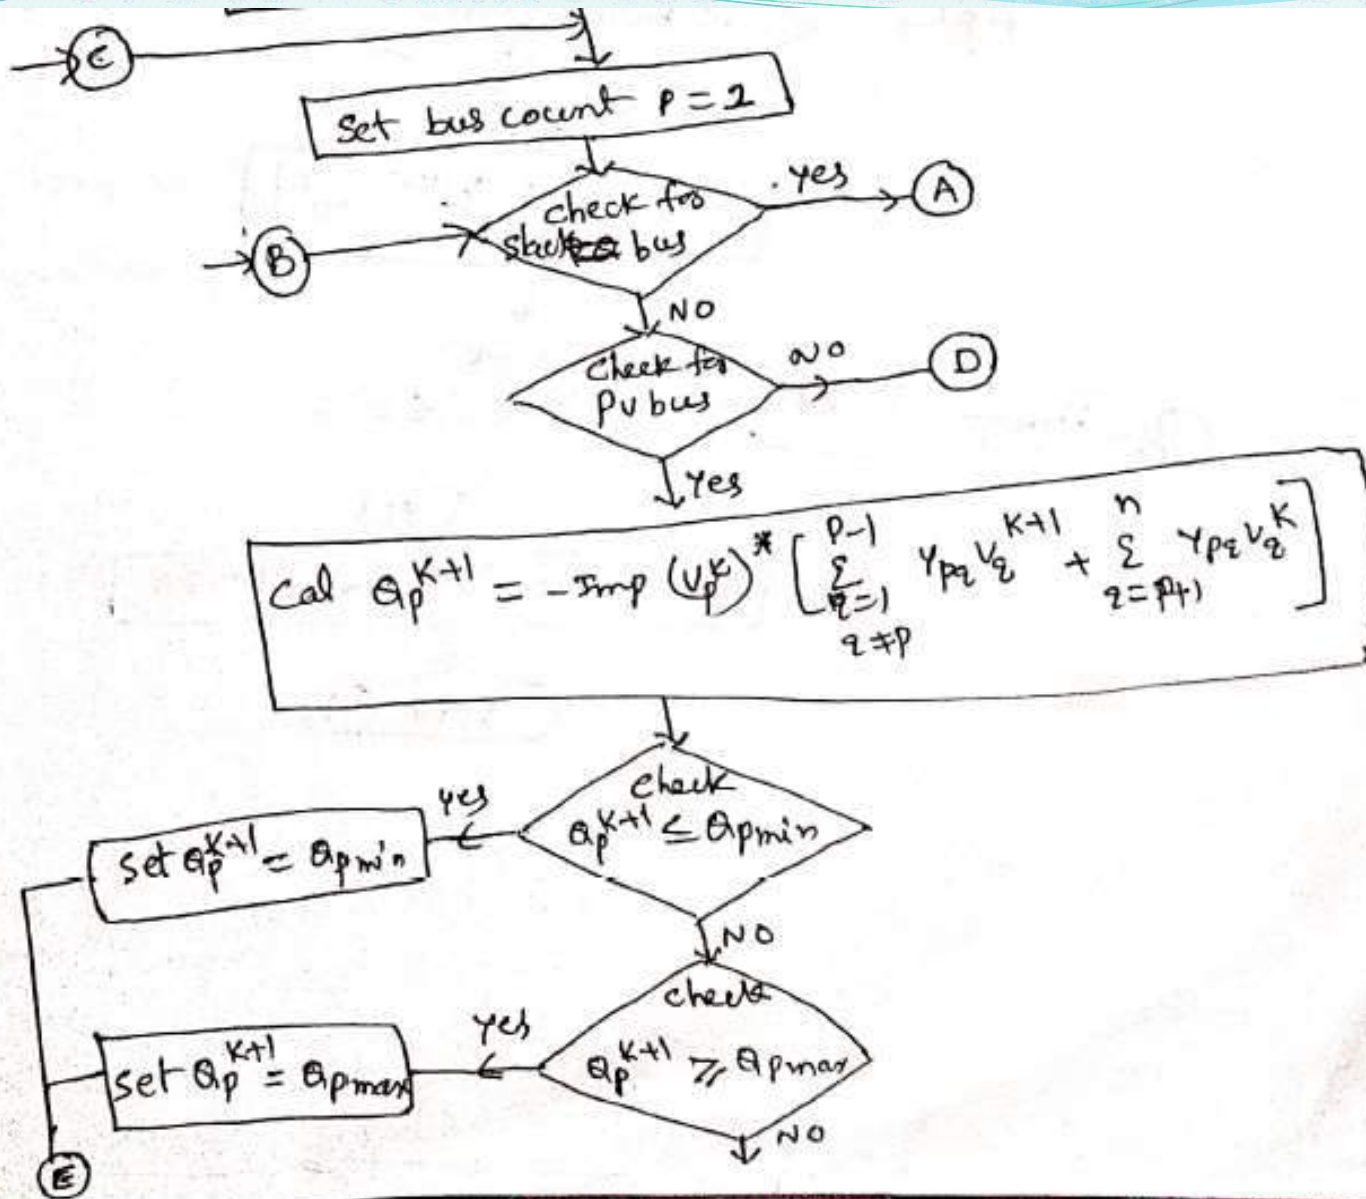 C
Set bus count P = 1
Check for
slack bus
Yes
A
B
NO
Check for
PV bus
NO
D
Yes
Cal Qp^K+1 = -Imp (Vp^K)* [ Σ q=1 q≠p ^P-1 Ypq Vq^K+1 + Σ q=P+1 ^n Ypq Vq^K ]
Check
Qp^K+1 ≤ Qpmin
yes
set Qp^K+1 = Qpmin
NO
check
Qp^K+1 ≥ Qpmax
yes
set Qp^K+1 = Qpmax
NO
E